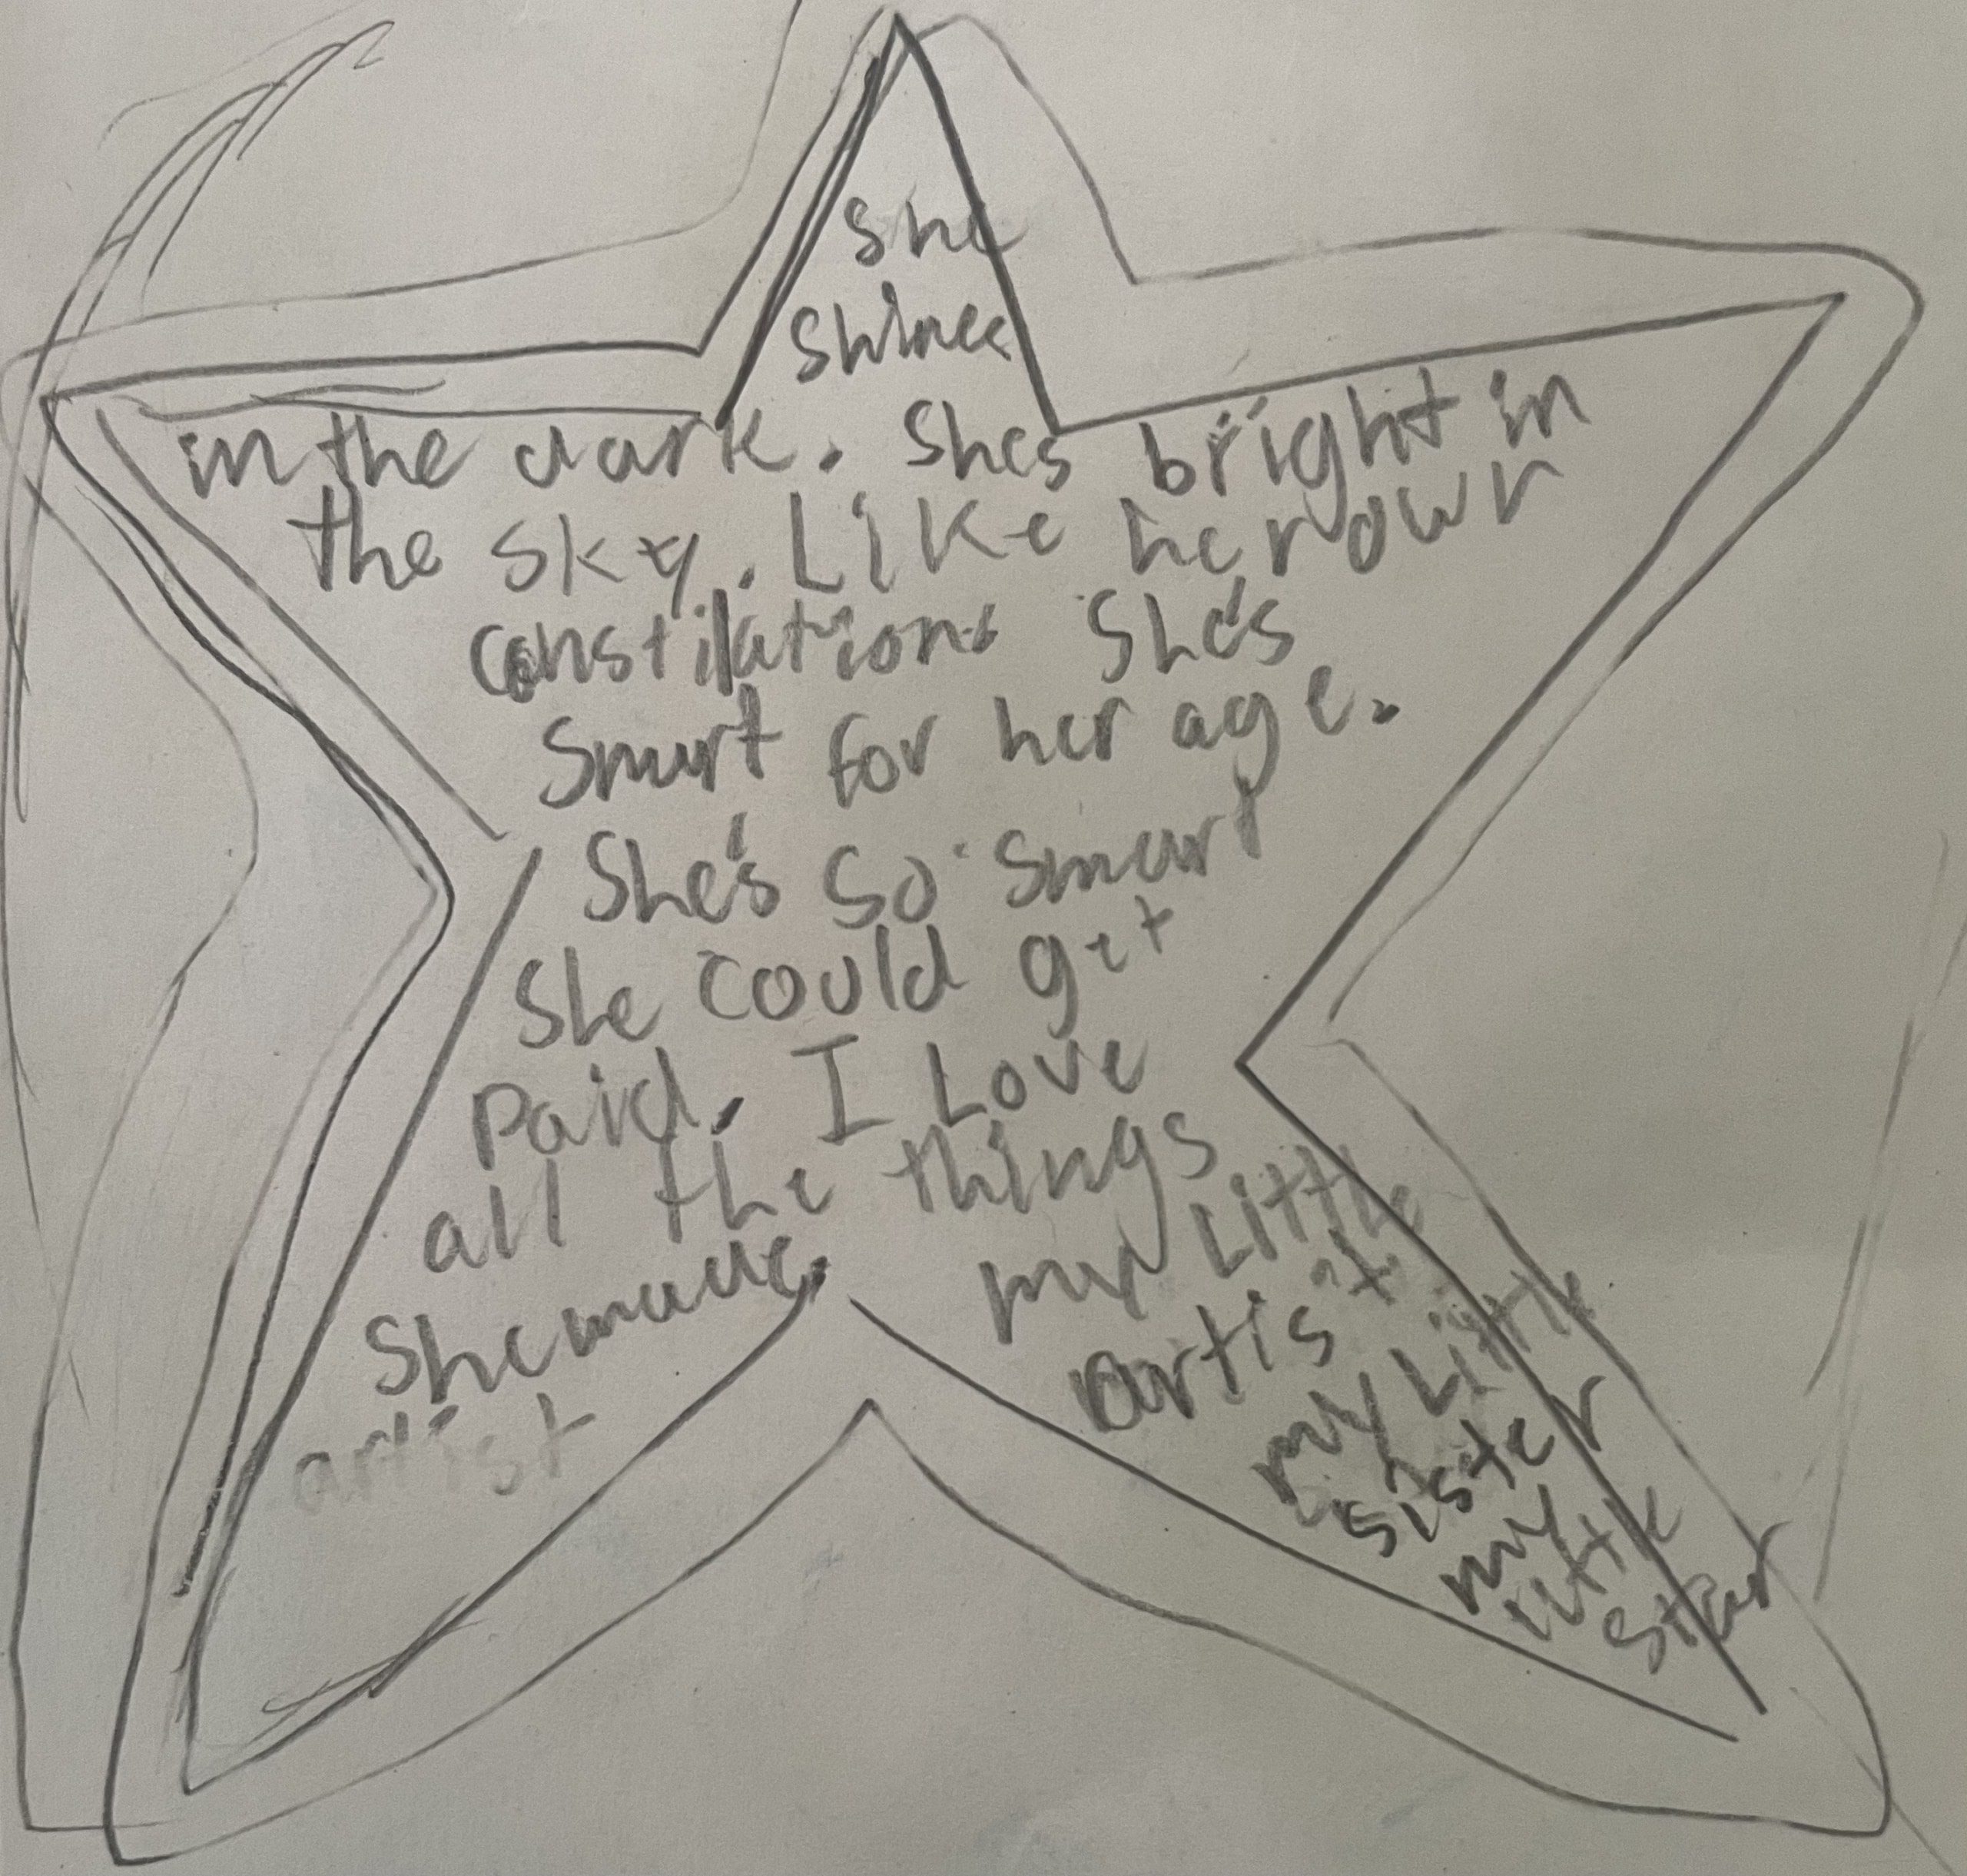 She
Shines
in the dark. Shes bright in
the sky. Like her own
constilations She's
Smart for her age.
She's So Smart
She could get
Paid. I Love
all the things
She made.
artist
my Little
artist
my Little
sister
my
little
star